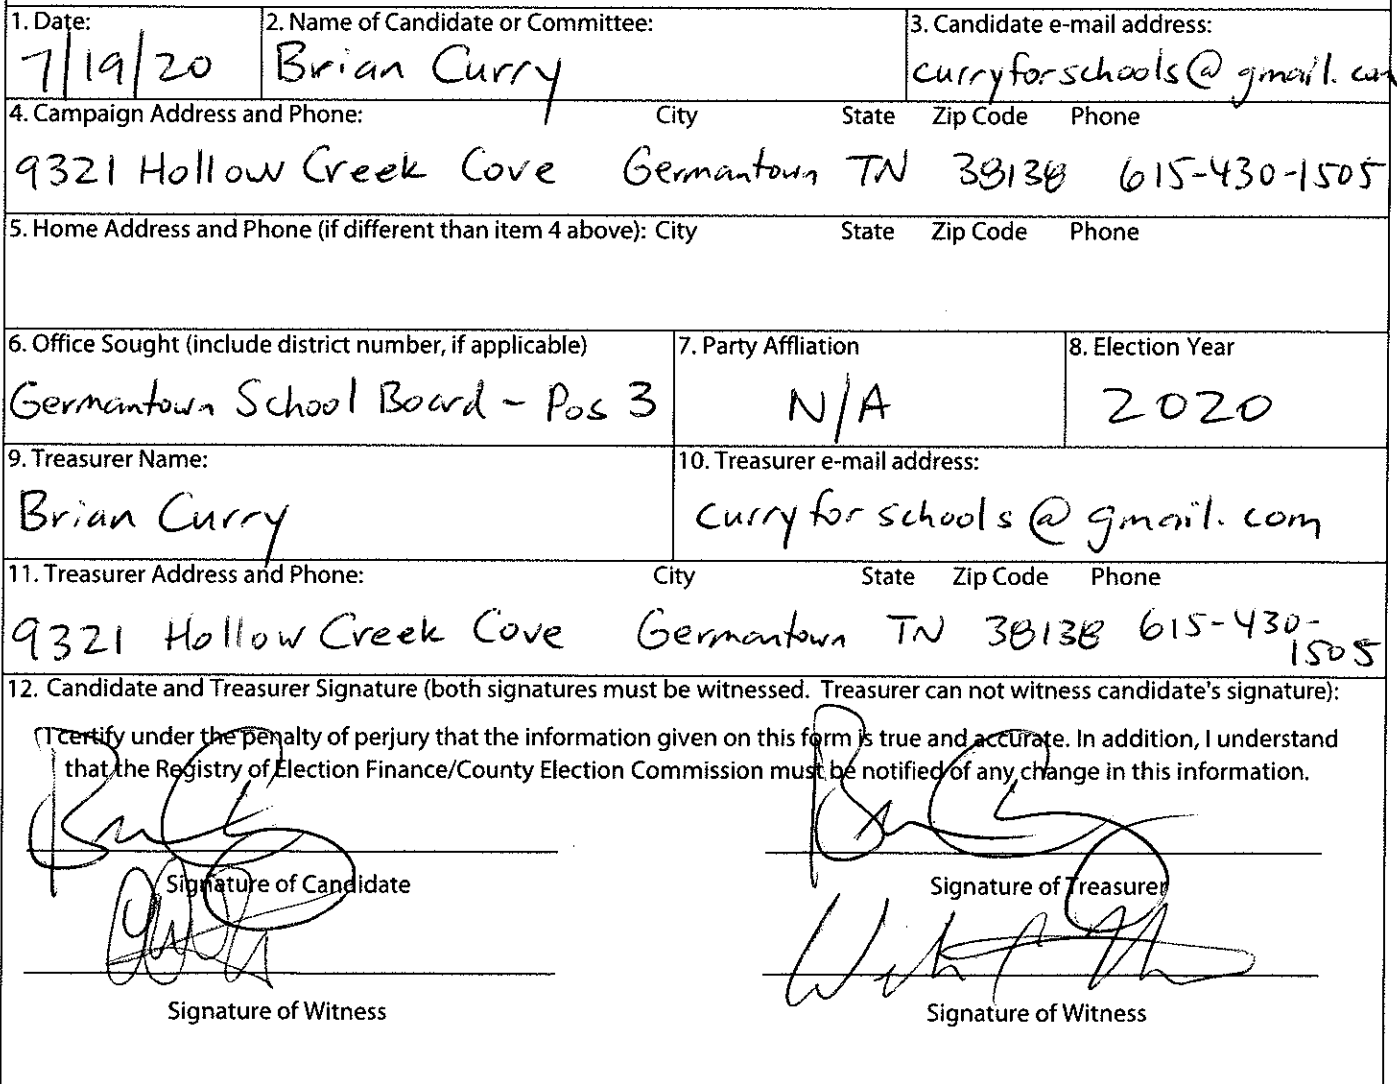 1. Date: 2. Name of Candidate or Committee: 3. Candidate e-mail address:
7/19/20 Brian Curry curryforschools@gmail.com
4. Campaign Address and Phone: City State Zip Code Phone
9321 Hollow Creek Cove Germantown TN 38138 615-430-1505
5. Home Address and Phone (if different than item 4 above): City State Zip Code Phone
6. Office Sought (include district number, if applicable) 7. Party Affliation 8. Election Year
Germantown School Board - Pos 3 N/A 2020
9. Treasurer Name: 10. Treasurer e-mail address:
Brian Curry curryforschools@gmail.com
11. Treasurer Address and Phone: City State Zip Code Phone
9321 Hollow Creek Cove Germantown TN 38138 615-430-
1505
12. Candidate and Treasurer Signature (both signatures must be witnessed. Treasurer can not witness candidate's signature):
I certify under the penalty of perjury that the information given on this form is true and accurate. In addition, I understand
that the Registry of Election Finance/County Election Commission must be notified of any change in this information.
Signature of Candidate Signature of Treasurer
Signature of Witness Signature of Witness